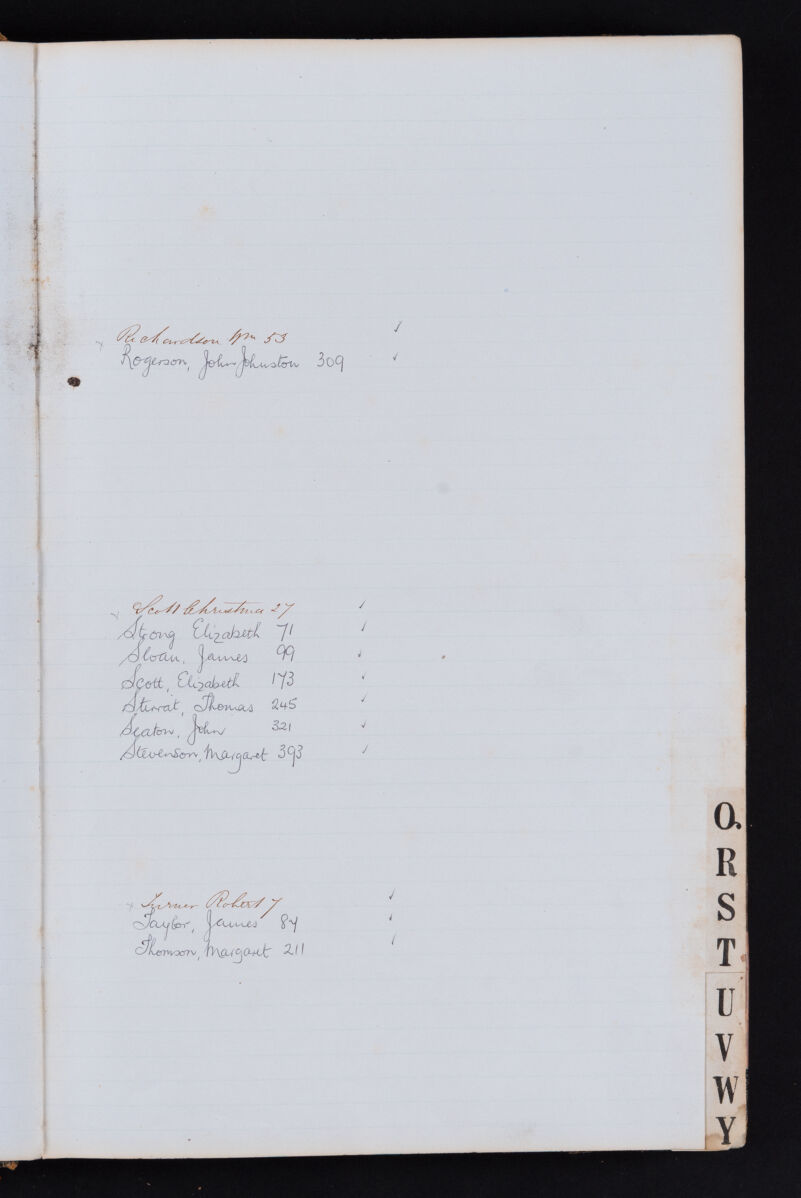 Richardson Wm 53 ✓
Rogerson, John Johnston 309 ✓
Scott Christina 27 ✓
Strong Elizabeth 71 ✓
Sloan, James 99 ✓
Scott, Elizabeth 173 ✓
Stirrat, Thomas 245 ✓
Seaton, John 321 ✓
Stevenson, Margaret 393 ✓
Turner Robert 7 ✓
Taylor, James 84 ✓
Thomson, Margaret 211 ✓
O.
R
S
T
U
V
W
Y